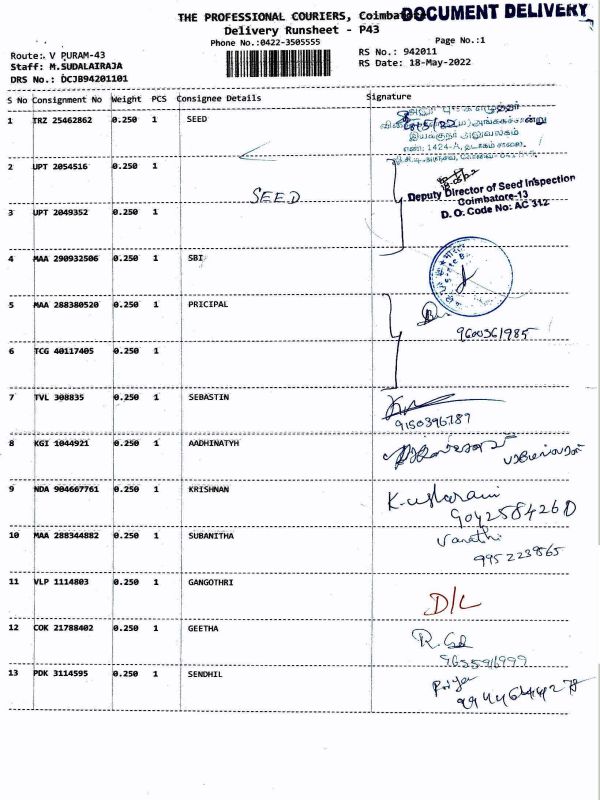 THE PROFESSIONAL COURIERS, Coimbatore
DOCUMENT DELIVERY
Delivery Runsheet - P43
Phone No.:0422-3505555
Page No.:1
Route: V PURAM-43
RS No.: 942011
Staff: M.SUDALAIRAJA
RS Date: 18-May-2022
DRS No.: DCJB94201101
S No Consignment No Weight PCS Consignee Details Signature
1 IRZ 25462862 0.250 1 SEED
இயக்குநர் அலுவலகம்
எண்: 1424-A, தடாகம் சாலை,
2 UPT 2054516 0.250 1
SEED
Deputy Director of Seed Inspection
Coimbatore-13
D. O. Code No: AC 312
3 UPT 2049352 0.250 1
4 MAA 290932506 0.250 1 SBI
5 MAA 288380520 0.250 1 PRICIPAL
9600361985
6 TCG 40117405 0.250 1
7 TVL 308835 0.250 1 SEBASTIN
9150396789
8 KGI 1044921 0.250 1 AADHINATYH
9 NDA 904667761 0.250 1 KRISHNAN
10 MAA 288344882 0.250 1 SUBANITHA
Vanathi
11 VLP 1114803 0.250 1 GANGOTHRI
D/L
12 COK 21788402 0.250 1 GEETHA
13 PDK 3114595 0.250 1 SENDHIL
Priya